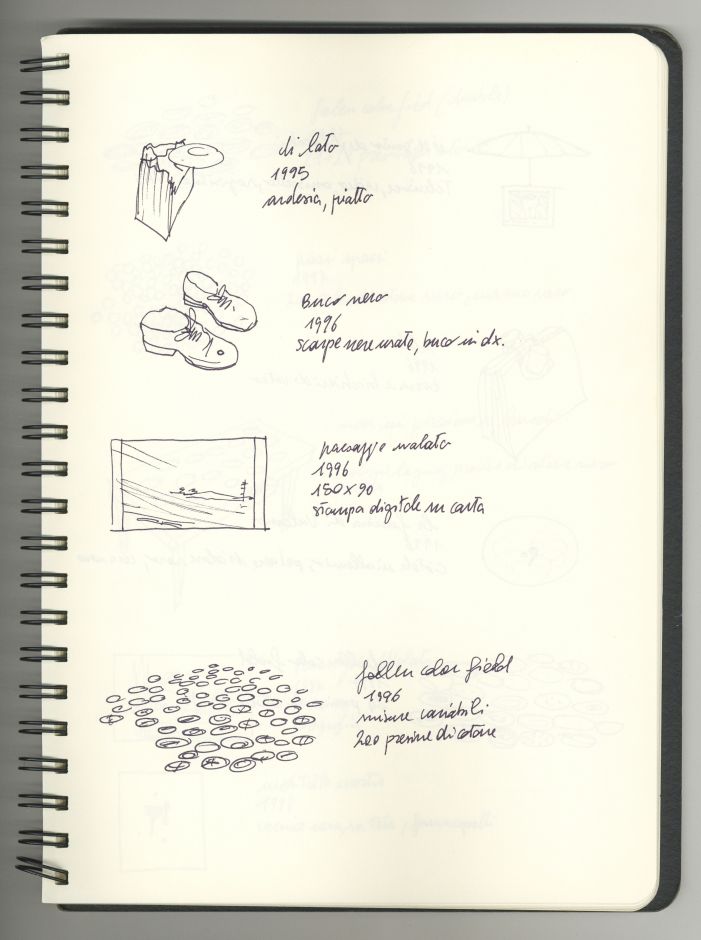 di lato
1995
ardesia, piatto
Buco nero
1996
scarpe nere usate, buco in dx.
paesaggio malato
1996
150x90
stampa digitale su carta
fallen color field
1996
misure variabili
200 presine di cotone